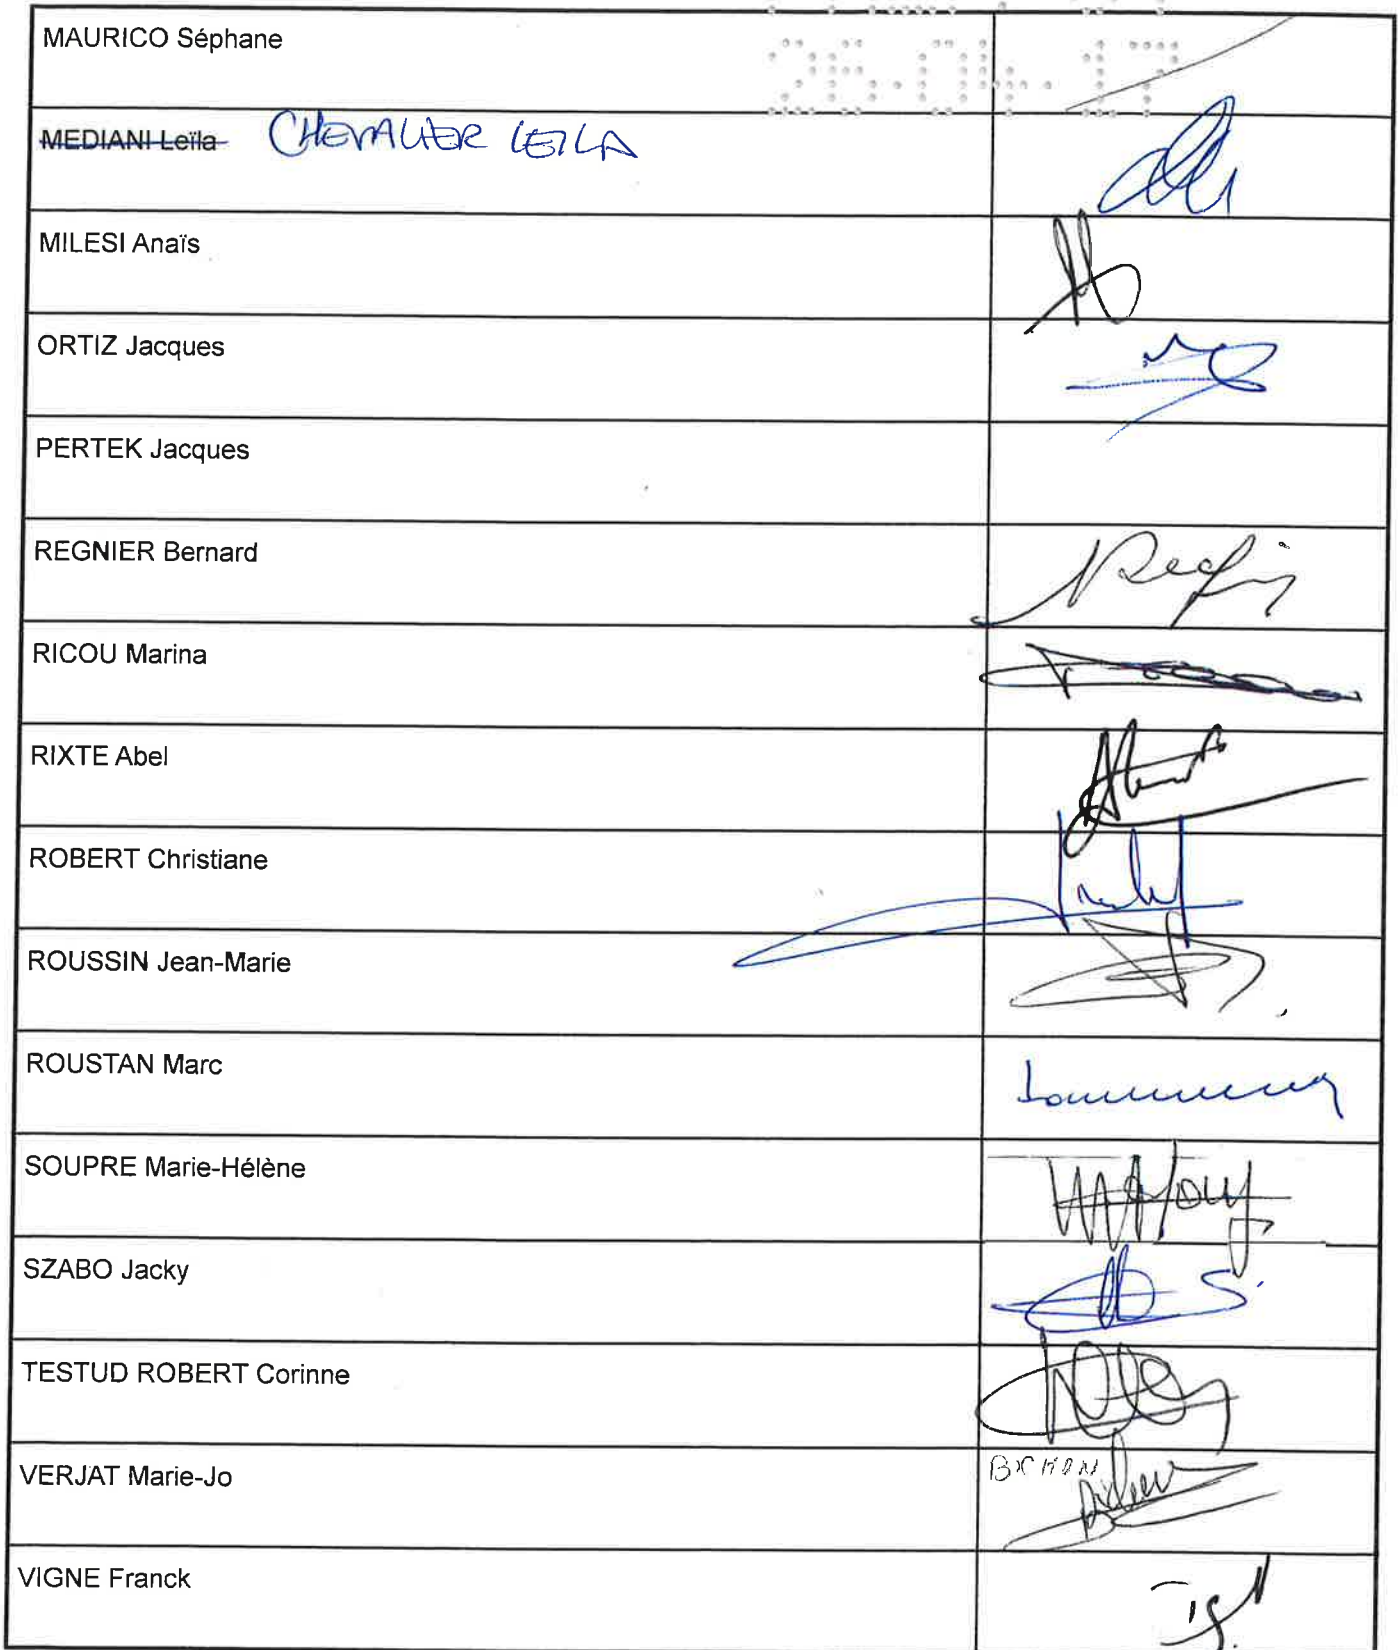 26-04-17
MAURICO Séphane
MEDIANI Leïla CHEVALIER LEILA
MILESI Anaïs
ORTIZ Jacques
PERTEK Jacques
REGNIER Bernard
RICOU Marina
RIXTE Abel
ROBERT Christiane
ROUSSIN Jean-Marie
ROUSTAN Marc
SOUPRE Marie-Hélène
SZABO Jacky
TESTUD ROBERT Corinne
VERJAT Marie-Jo
VIGNE Franck